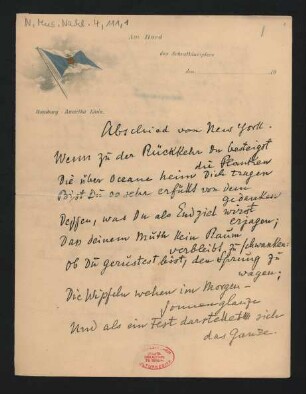 N. Mus. Nachl. 4, 111,1
1
An Bord
des Schnelldampfers
den
19
Hamburg-Amerika Linie.
Abschied von New York.
Wenn zu der Rückkehr Du besteigst
die Planken
Die über Oceane heim Dich tragen
Bist Du so sehr erfüllt von dem
gedenken
Dessen, was Du als Endziel wirst
erjagen;
Das deinem Muth kein Raum
verbleibt zu schwanken:
Ob Du gerüstet bist, den Sprung zu
wagen;
Die Wimpeln wehen im Morgen-
sonnenglanze
Und als ein Fest darstellet sich
das Ganze.